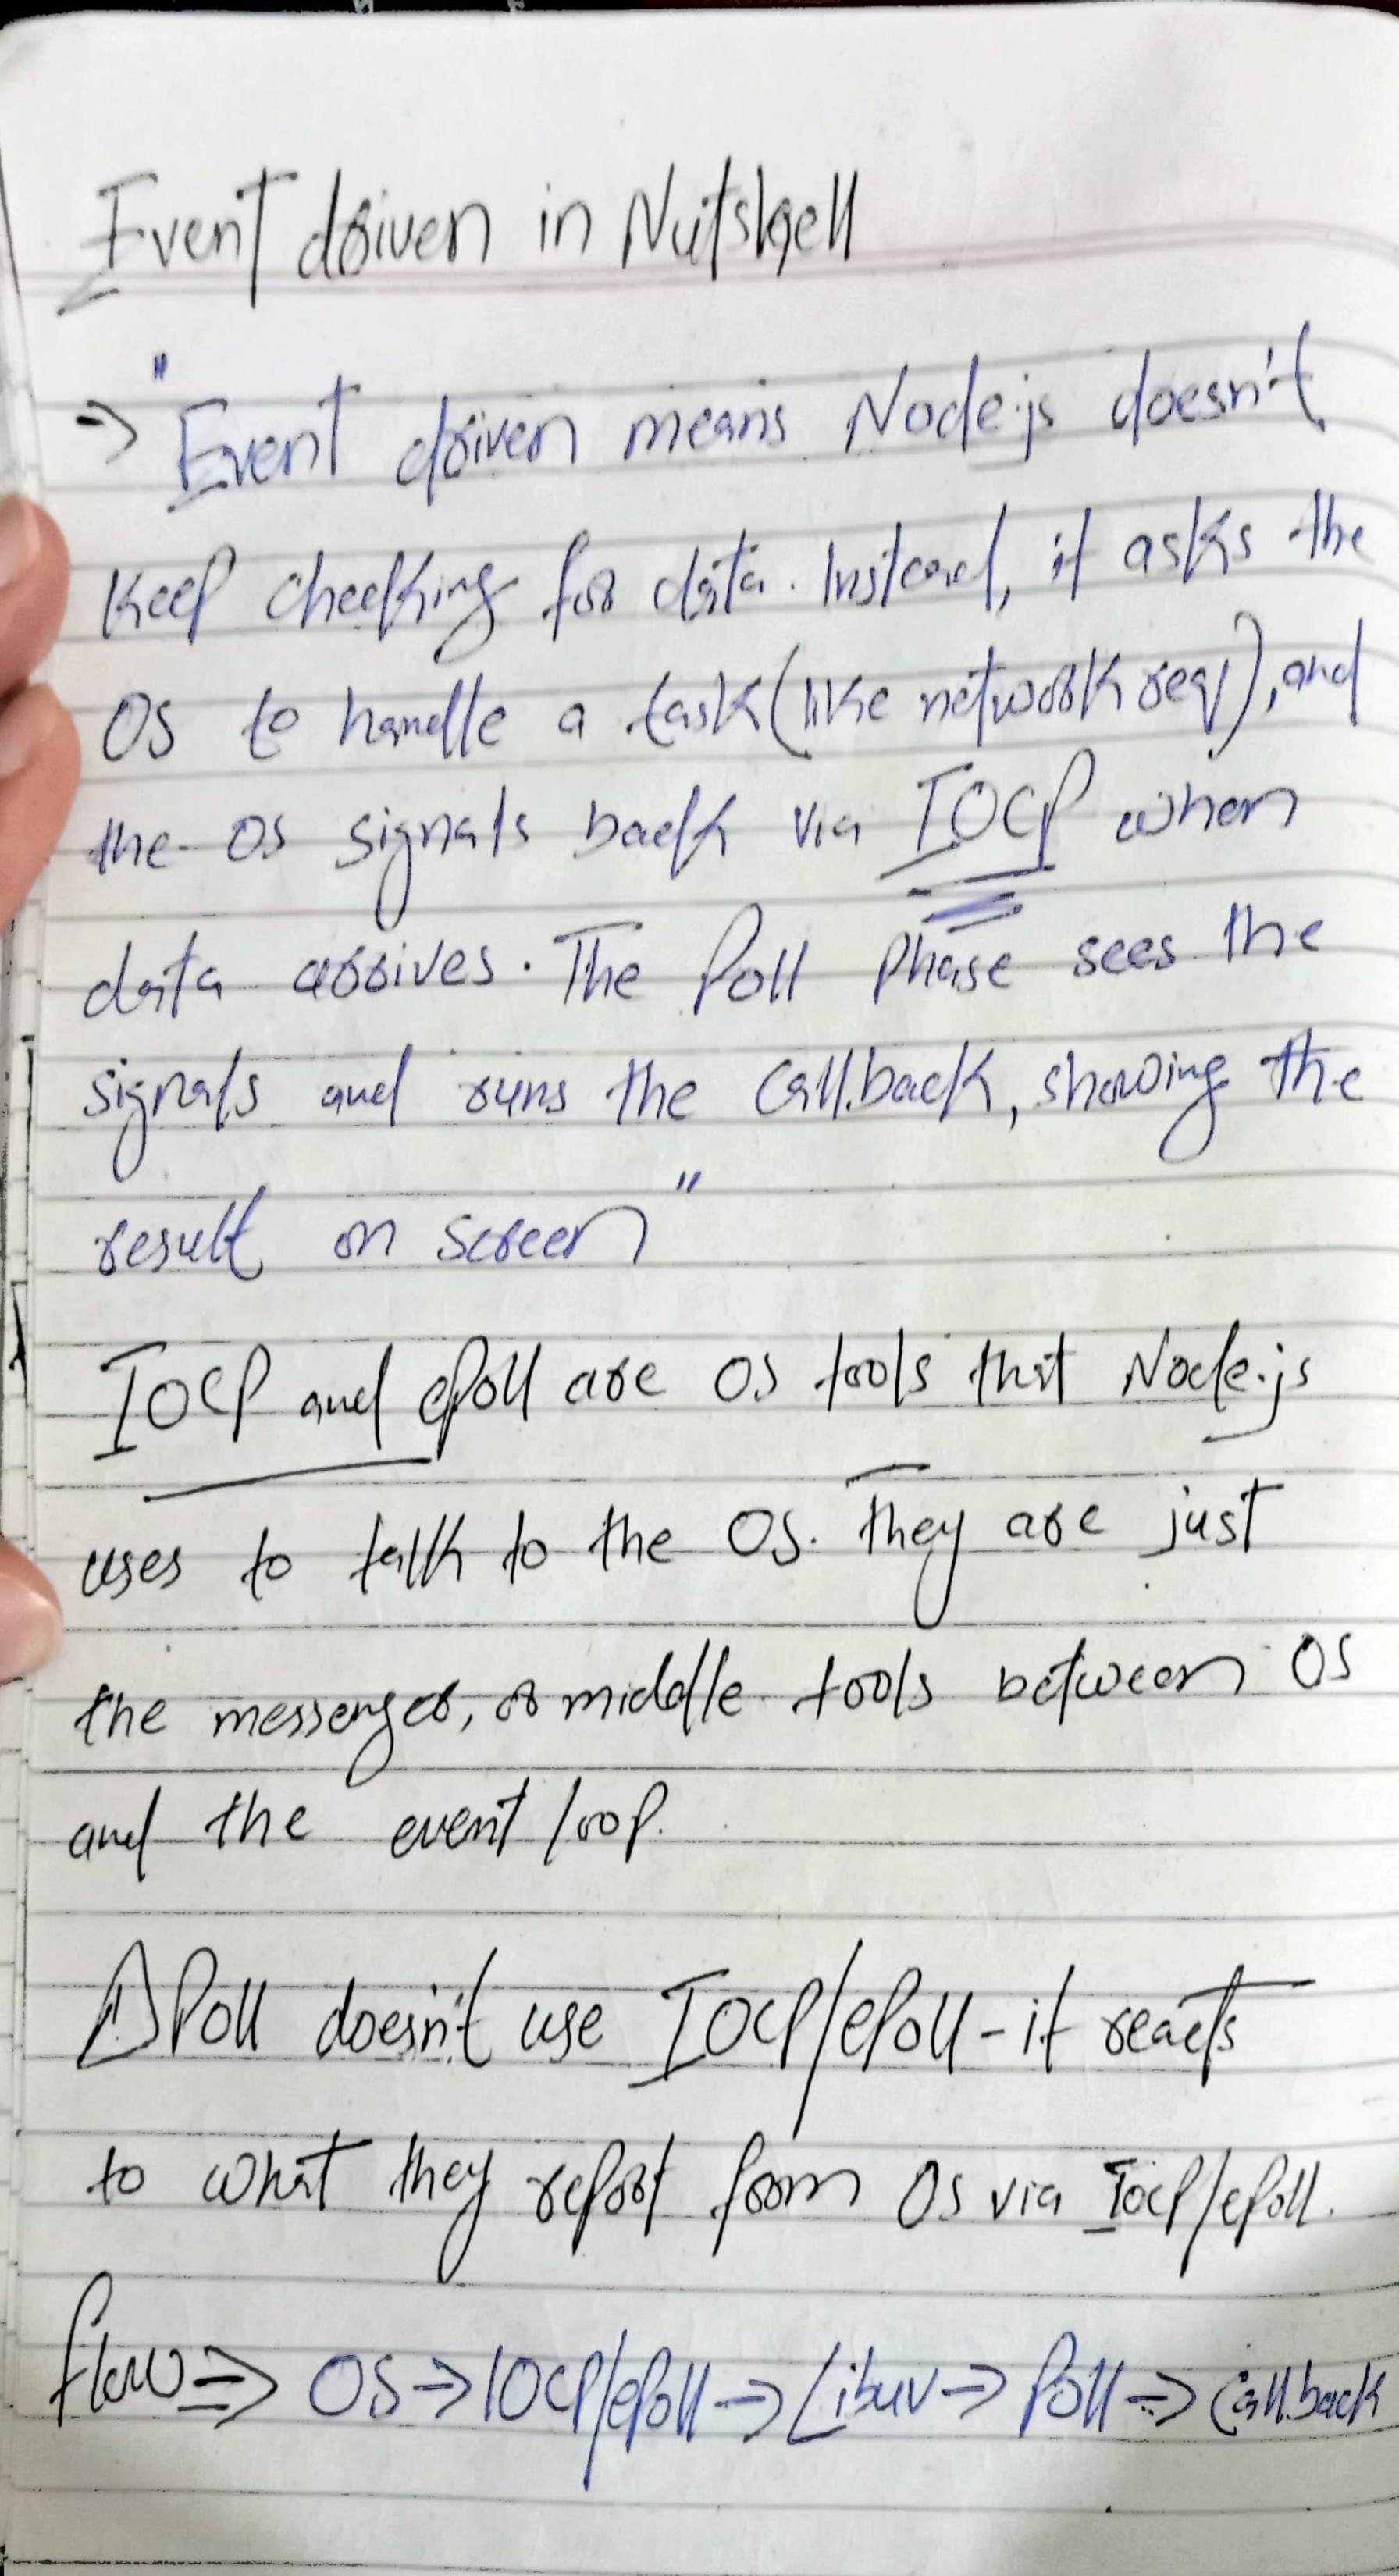 Event driven in Nutshell
=> "Event driven means Node.js doesn't
keep checking for data. Instead, it asks the
OS to handle a task (like network req), and
the OS signals back via IOCP when
data arrives. The Poll Phase sees the
signals and runs the callback, showing the
result on screen"
IOCP and epoll are OS tools that Node.js
uses to talk to the OS. They are just
the messenger, or middle tools between OS
and the event loop.
⚠ Poll doesn't use IOCP/epoll - it reacts
to what they report from OS via IOCP/epoll.
flow => OS => IOCP/epoll => Libuv => Poll => Callback